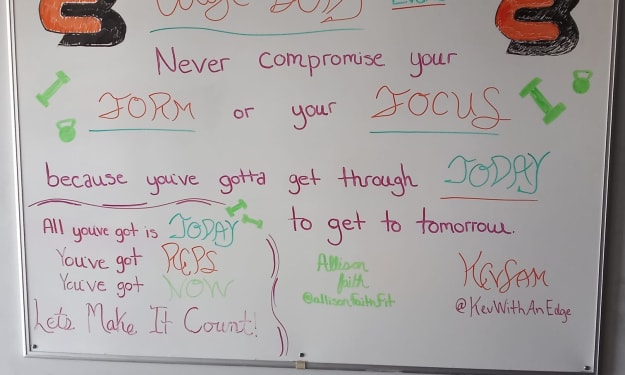 Never compromise your
FORM or your FOCUS
because you've gotta get through TODAY
to get to tomorrow.
All you've got is TODAY
You've got REPS
You've got NOW
Lets Make It Count!
Allison
faith
@allisonfaithfit
KevSam
@KevWithAnEdge